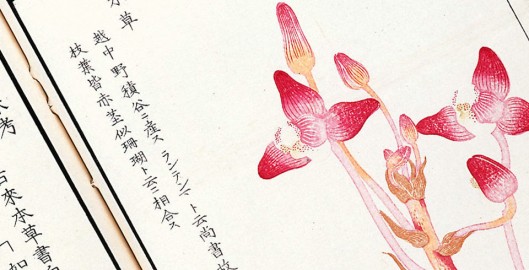 草
越中野積谷ニ産スランテンマト云尚書故
枝葉皆赤茎似珊瑚ト云ニ相合ス
考
古來本草書
「如